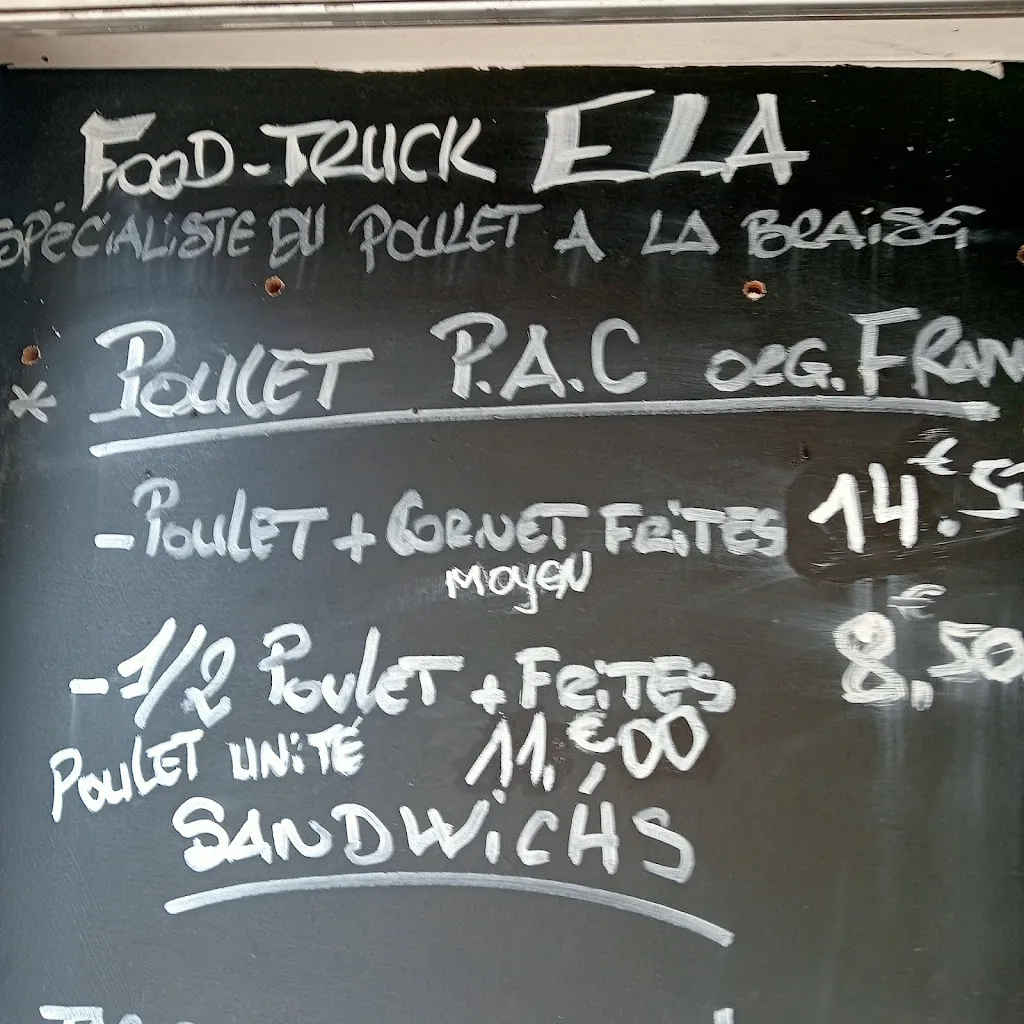 FOOD-TRUCK ELA
SPÉCIALISTE DU POULET A LA BRAISE
* POULET P.A.C ORG. FRAN
- POULET + CORNET FRITES 14.€50
MOYEN
- 1/2 POULET + FRITES 8,€50
POULET UNITÉ 11,€00
SANDWICHS